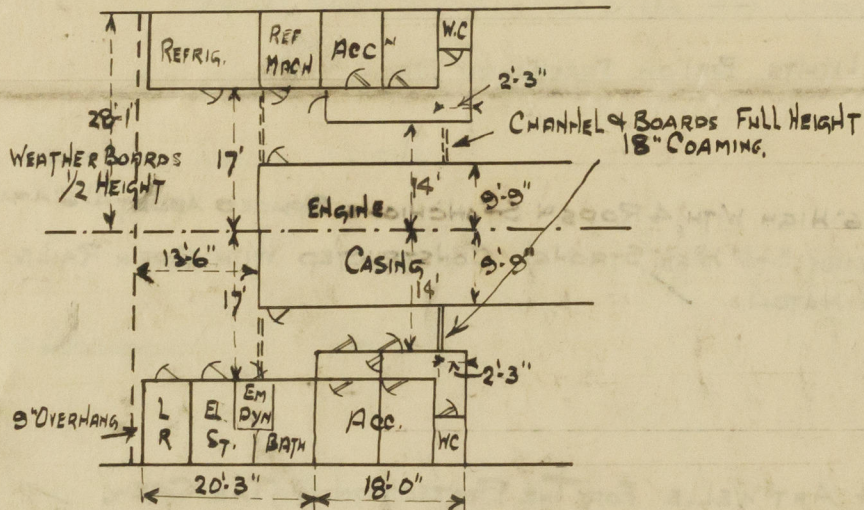 REFRIG.
REF
MACH
ACC
W.C
2'-3"
28'-1"
CHANNEL & BOARDS FULL HEIGHT
18" COAMING.
WEATHER BOARDS
1/2 HEIGHT
17'
14'
9'-9"
ENGINE
13'-6"
CASING
9'-9"
17'
14'
2'-3"
9" OVERHANG
L
R
EL
ST.
EM
DYN
BATH
ACC.
WC
20'-3"
18'-0"